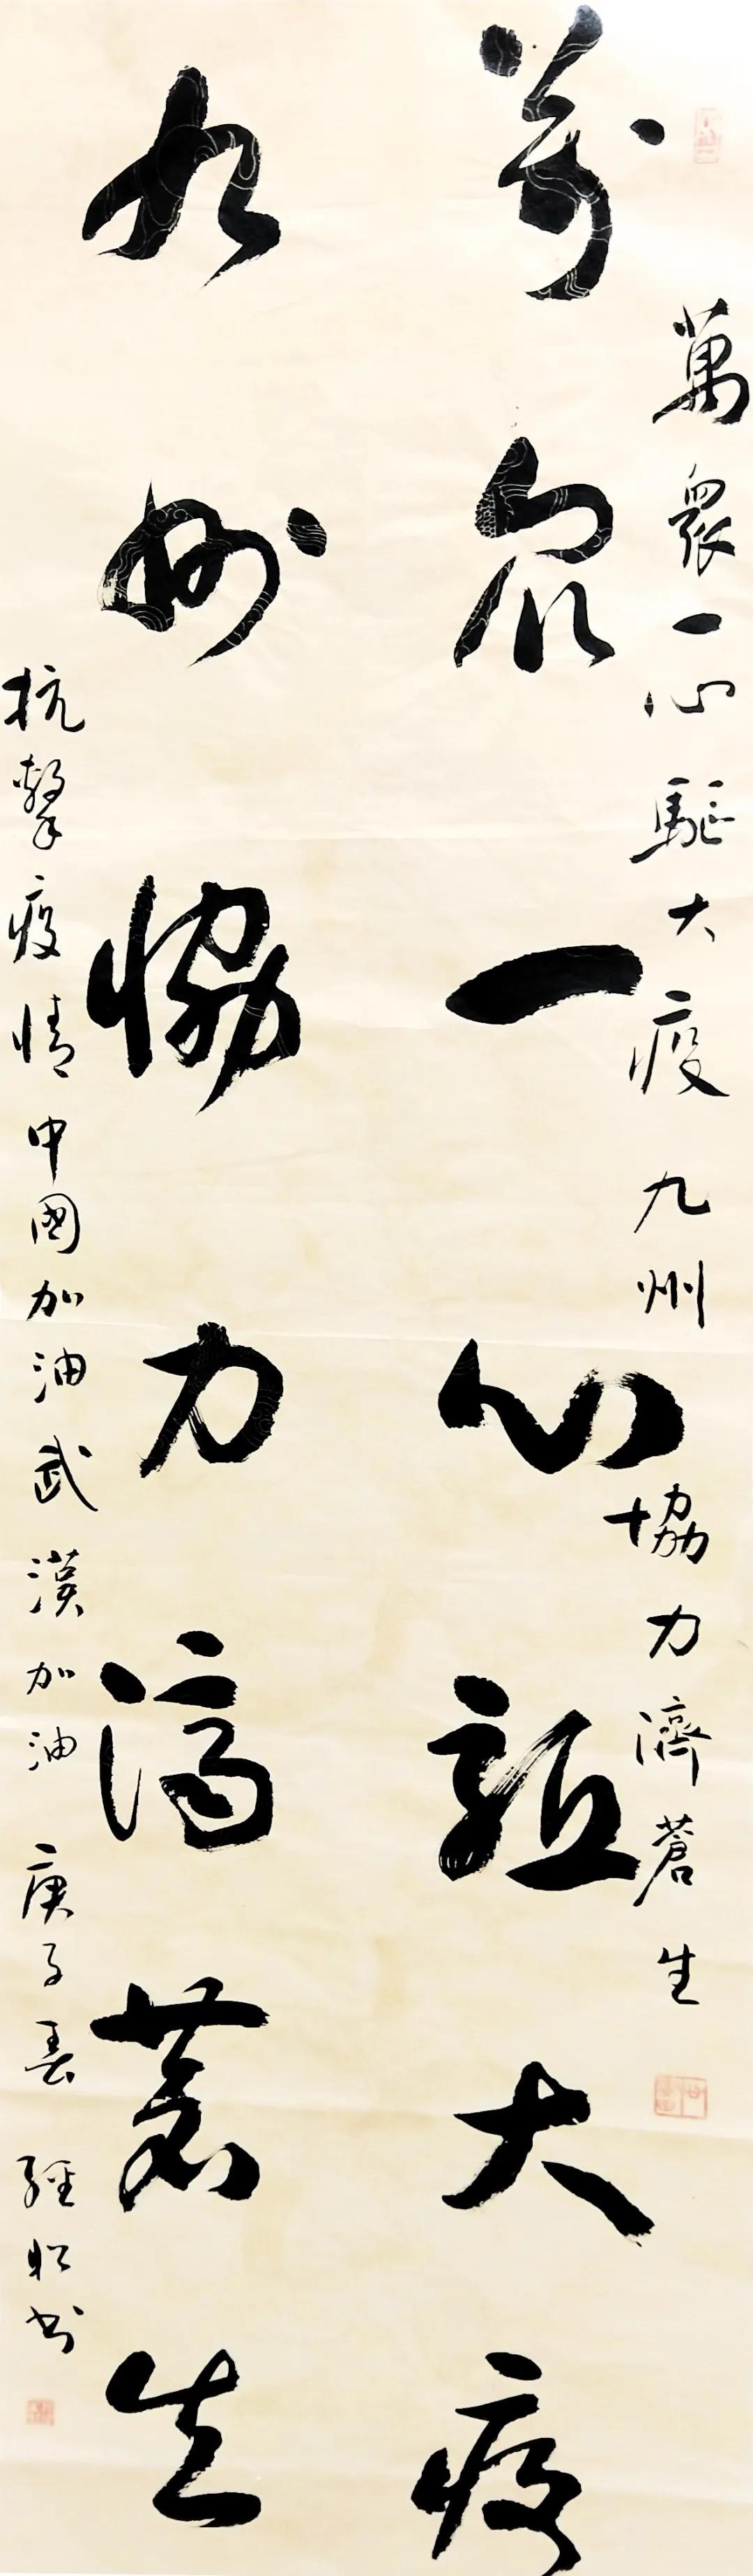 萬眾一心驅大疫
九州協力濟蒼生
萬眾一心驅大疫 九州協力濟蒼生
抗擊疫情中國加油武漢加油 庚子春 經松书